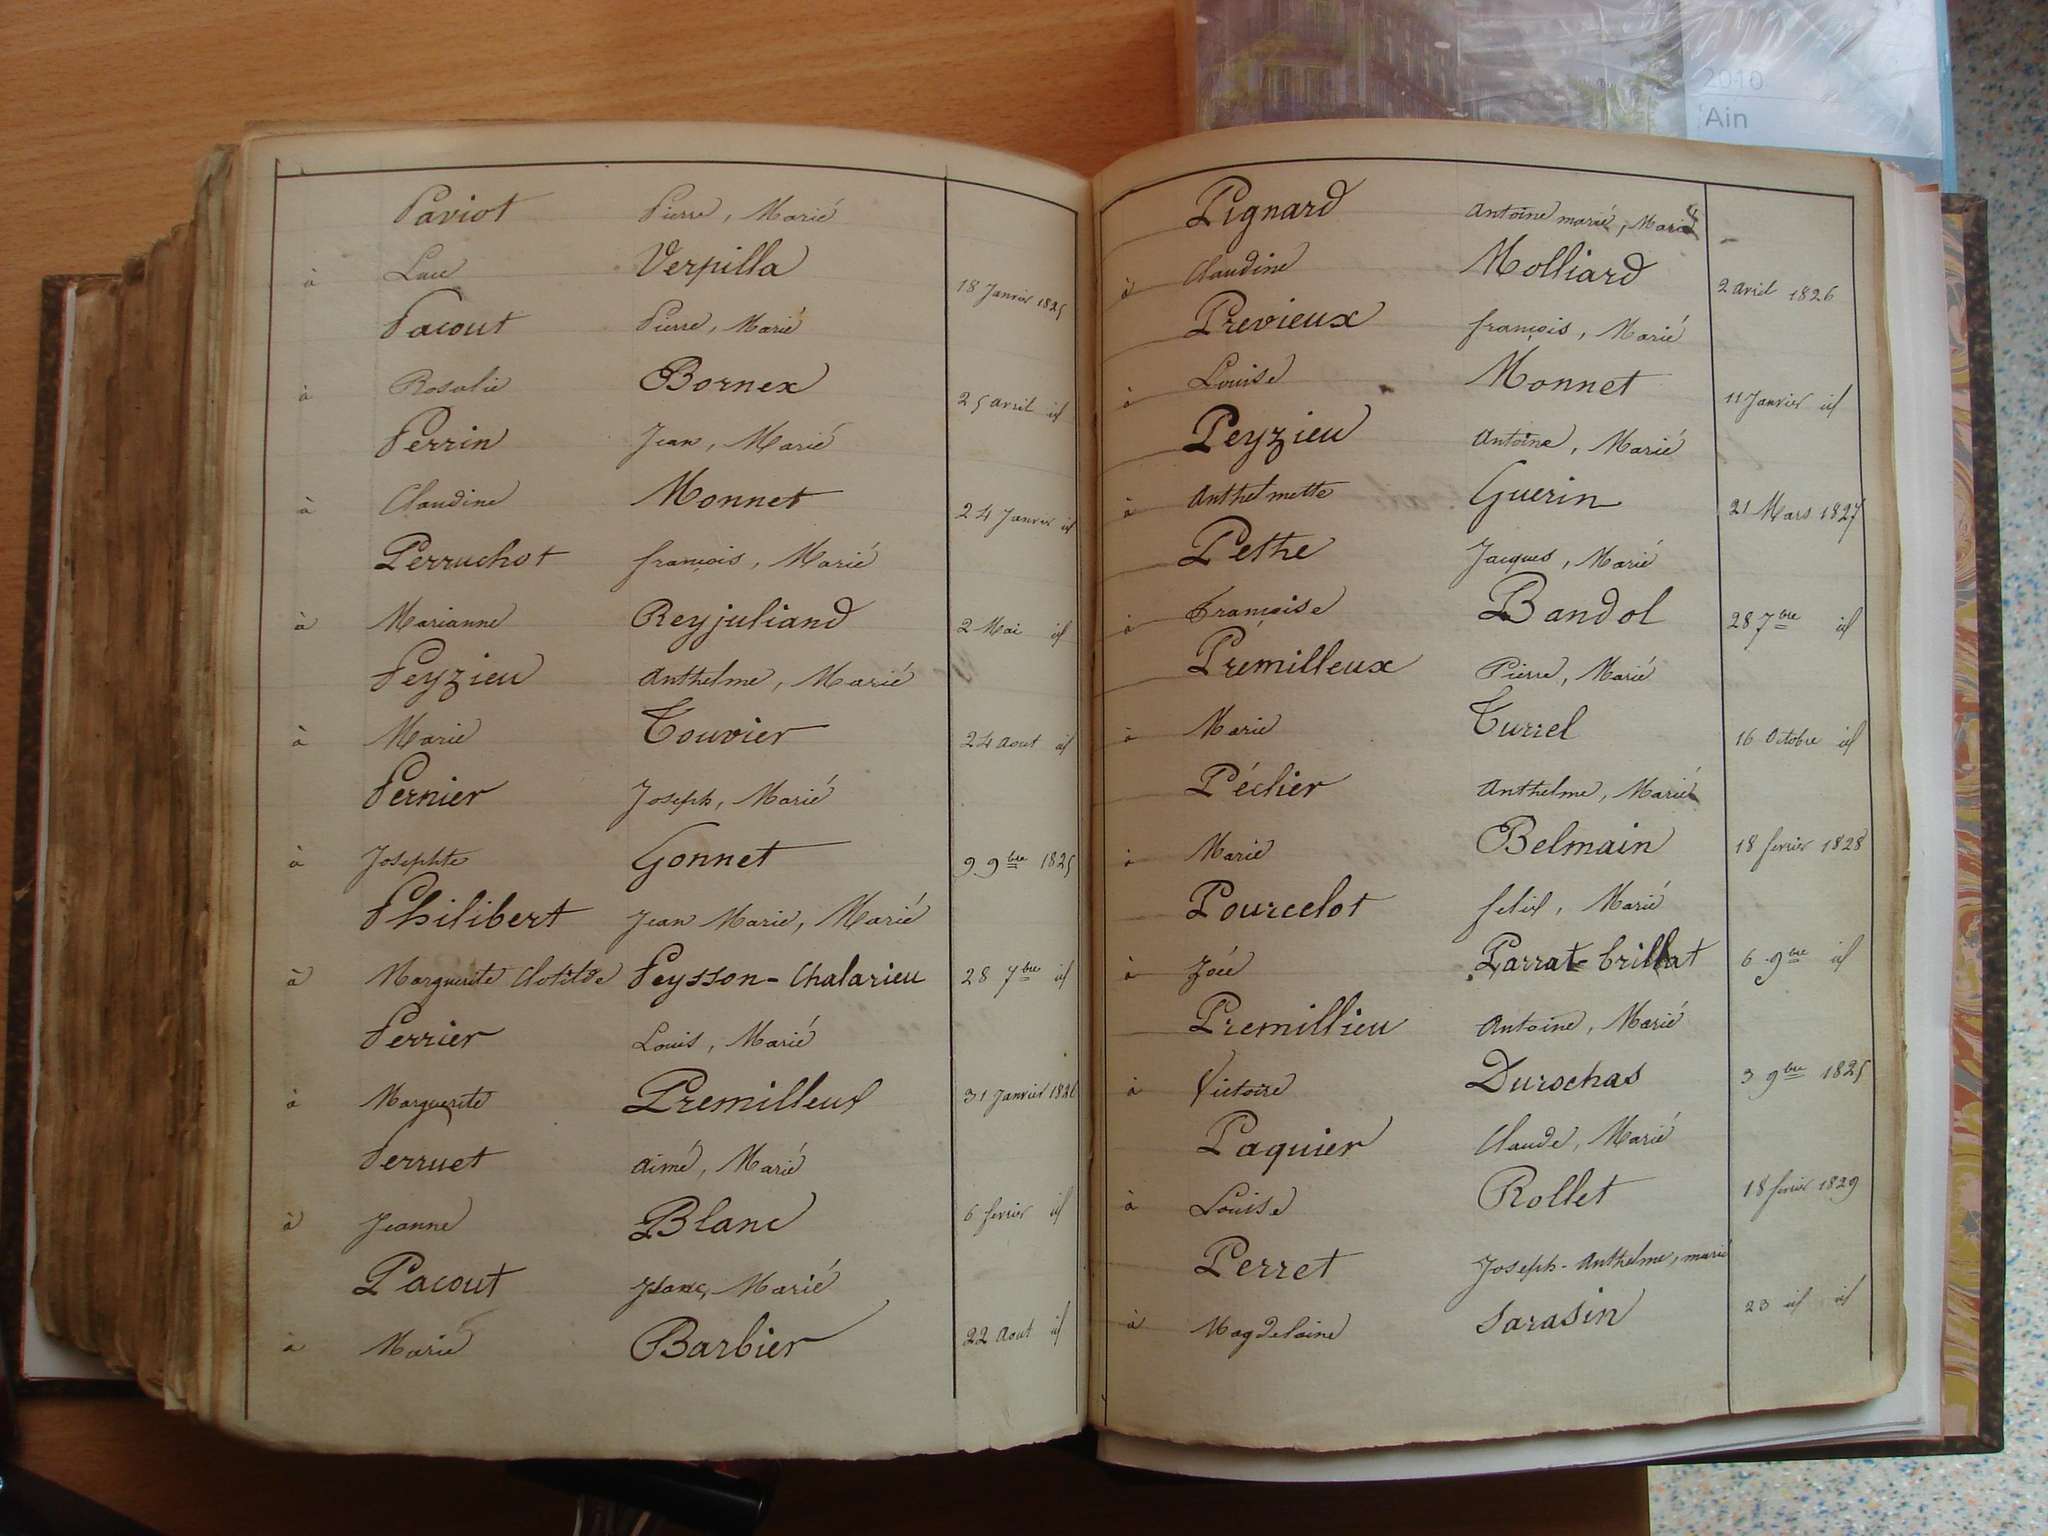 Paviot Pierre, Marié
à Luce Verpilla 18 Janvier 1825
Pacout Pierre, Marié
à Rosalie Bornex 25 avril id
Perrin Jean, Marié
à Claudine Monnet 24 Janvier id
Perruchot françois, Marié
à Marianne Reyjuliand 2 Mai id
Peyzieu Anthelme, Marié
à Marie Touvier 24 Aout id
Pernier Joseph, Marié
à Josephte Gonnet 9 9bre 1825
Philibert Jean Marie, Marié
à Marguerite Clotilde Peysson-Chalarieu 28 7bre id
Perrier Louis, Marié
à Marguerite Premilleux 31 Janvier 1826
Perruet aimé, Marié
à Jeanne Blanc 6 fevrier id
Pacout Marié
à Marie Barbier 22 Aout id
Pignard Antoine marié, Marié
à Claudine Molliard 2 avril 1826
Previeux françois, Marié
à Louise Monnet 11 Janvier id
Peyzieu Antoine, Marié
à Anthelmette Guerin 21 Mars 1827
Pethe Jacques, Marié
à Françoise Bandol 28 7bre id
Prémilleux Pierre, Marié
à Marie Turrel 16 Octobre id
Pécher Anthelme, Marié
à Marie Belmain 18 fevrier 1828
Pourcelot felix, Marié
à Zóée Parrat-brillat 6 9bre id
Premillieu Antoine, Marié
à Victoire Durochas 3 9bre 1825
Paquier Claude, Marié
à Louise Rollet 18 fevrier 1829
Perret Joseph-Anthelme, marié
à Magdelaine Sarasin 23 id id
2010
Ain